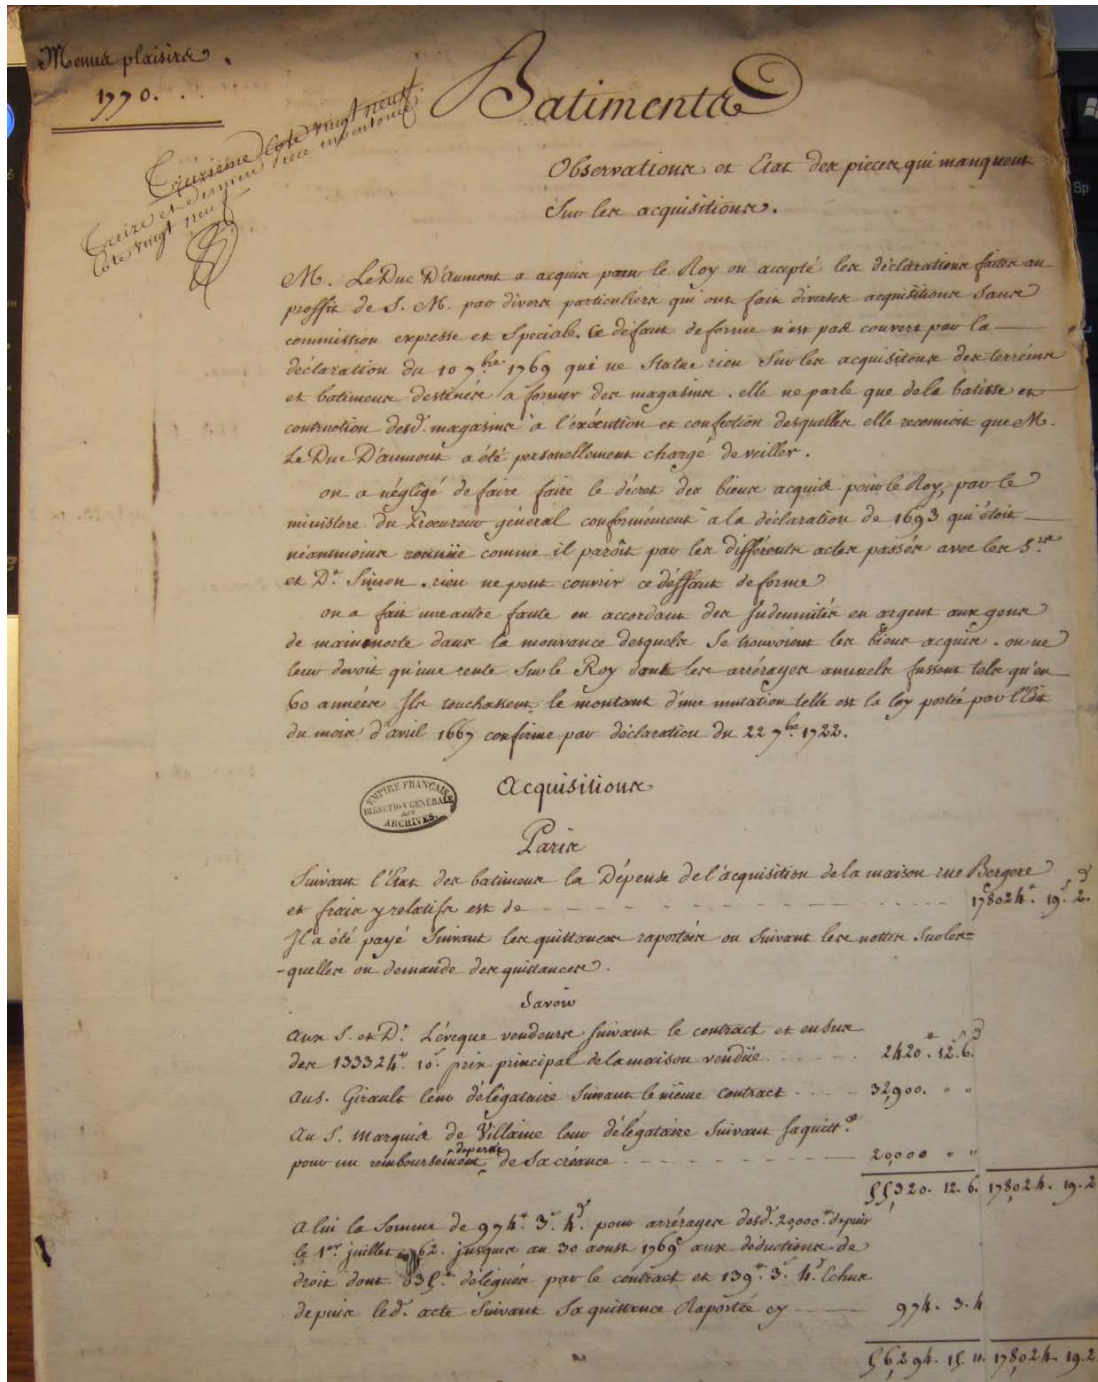 Menus plaisirs.
1770.
Batiments
Treizième Cote vingt neuf.
Treize et dernière
Cote vingt neuf
Observations et Etat des pieces qui manquent
Sur les acquisitions.
M. Le Duc D'aumont a acquis pour le Roy ou accepté les déclarations faites au
proffit de S. M. par divers particuliers qui ont fait diverses acquisitions Sans
commission expresse et Speciale. Ce défaut de forme n'est pas couvert par la
déclaration du 10 7.bre 1769 qui ne Statue rien Sur les acquisitons des terreins
et batimens destinés a former des magasins. elle ne parle que de la batisse et
contruction desd. magasins à l'éxécution et confection desquelles elle reconnoit que M.
Le Duc D'aumont a été personellement chargé de veiller.
on a négligé de faire faire le décret des biens acquis pour le Roy, par le
ministere du Procureur général conformément à la déclaration de 1693 qui étoit
néanmoins connüe comme il paroît par les différents actes passés avec les S.rs
et D.e Simon. rien ne peut couvrir ce déffaut de forme
on a fait une autre faute en accordant des Indemnités en argent aux gens
de mainmorte dans la mouvance desquels Se trouvoient les biens acquis. on ne
leur devoit qu'une rente Sur le Roy dont les arrérages annuels fussent tels qu'en
60 années Ils touchassent le montant d'une mutation telle est la loy portée par l'Edit
du mois d'avril 1667 confirmé par déclaration du 22 7.bre 1722.
Acquisitions
EMPIRE FRANÇAIS
DIRECTION GÉNÉRALE
DES
ARCHIVES.
Paris
Suivant l'Etat des batimens la Dépense de l'acquisition de la maison rue Bergere
et frais y relatifs est de 178024.# 19.s 2.d
Il a été payé Suivant les quittances raportées ou Suivant les nottes Sur les=
-quelles on demande des quittances.
Savoir
Aux S. et D.e Lévêque vendeurs Suivant le contract et en sus
des 133324.# 10.s prix principal de la maison vendüe 2420.# 12.s 6.d
Au S. Girault leur délégataire Suivant le même contract 32,900. " "
Au S. Marquis de Villaine leur délégataire Suivant Sa quitt.e
pour un remboursement de partie de Sa créance 20,000 " "
55,320. 12. 6. 178,024. 19. 2
A lui la Somme de 974.# 3.s 4.d pour arrérages desd. 20000.# depuis
le 1.er juillet 1762. jusques au 30 aoust 1769 aux déductions de
droit dont 835.# délégués par le contract et 139.# 3.s 4.d Echus
depuis led. acte Suivant Sa quittance Raportée cy 974. 3. 4
56,294. 15. 10. 178,024. 19. 2